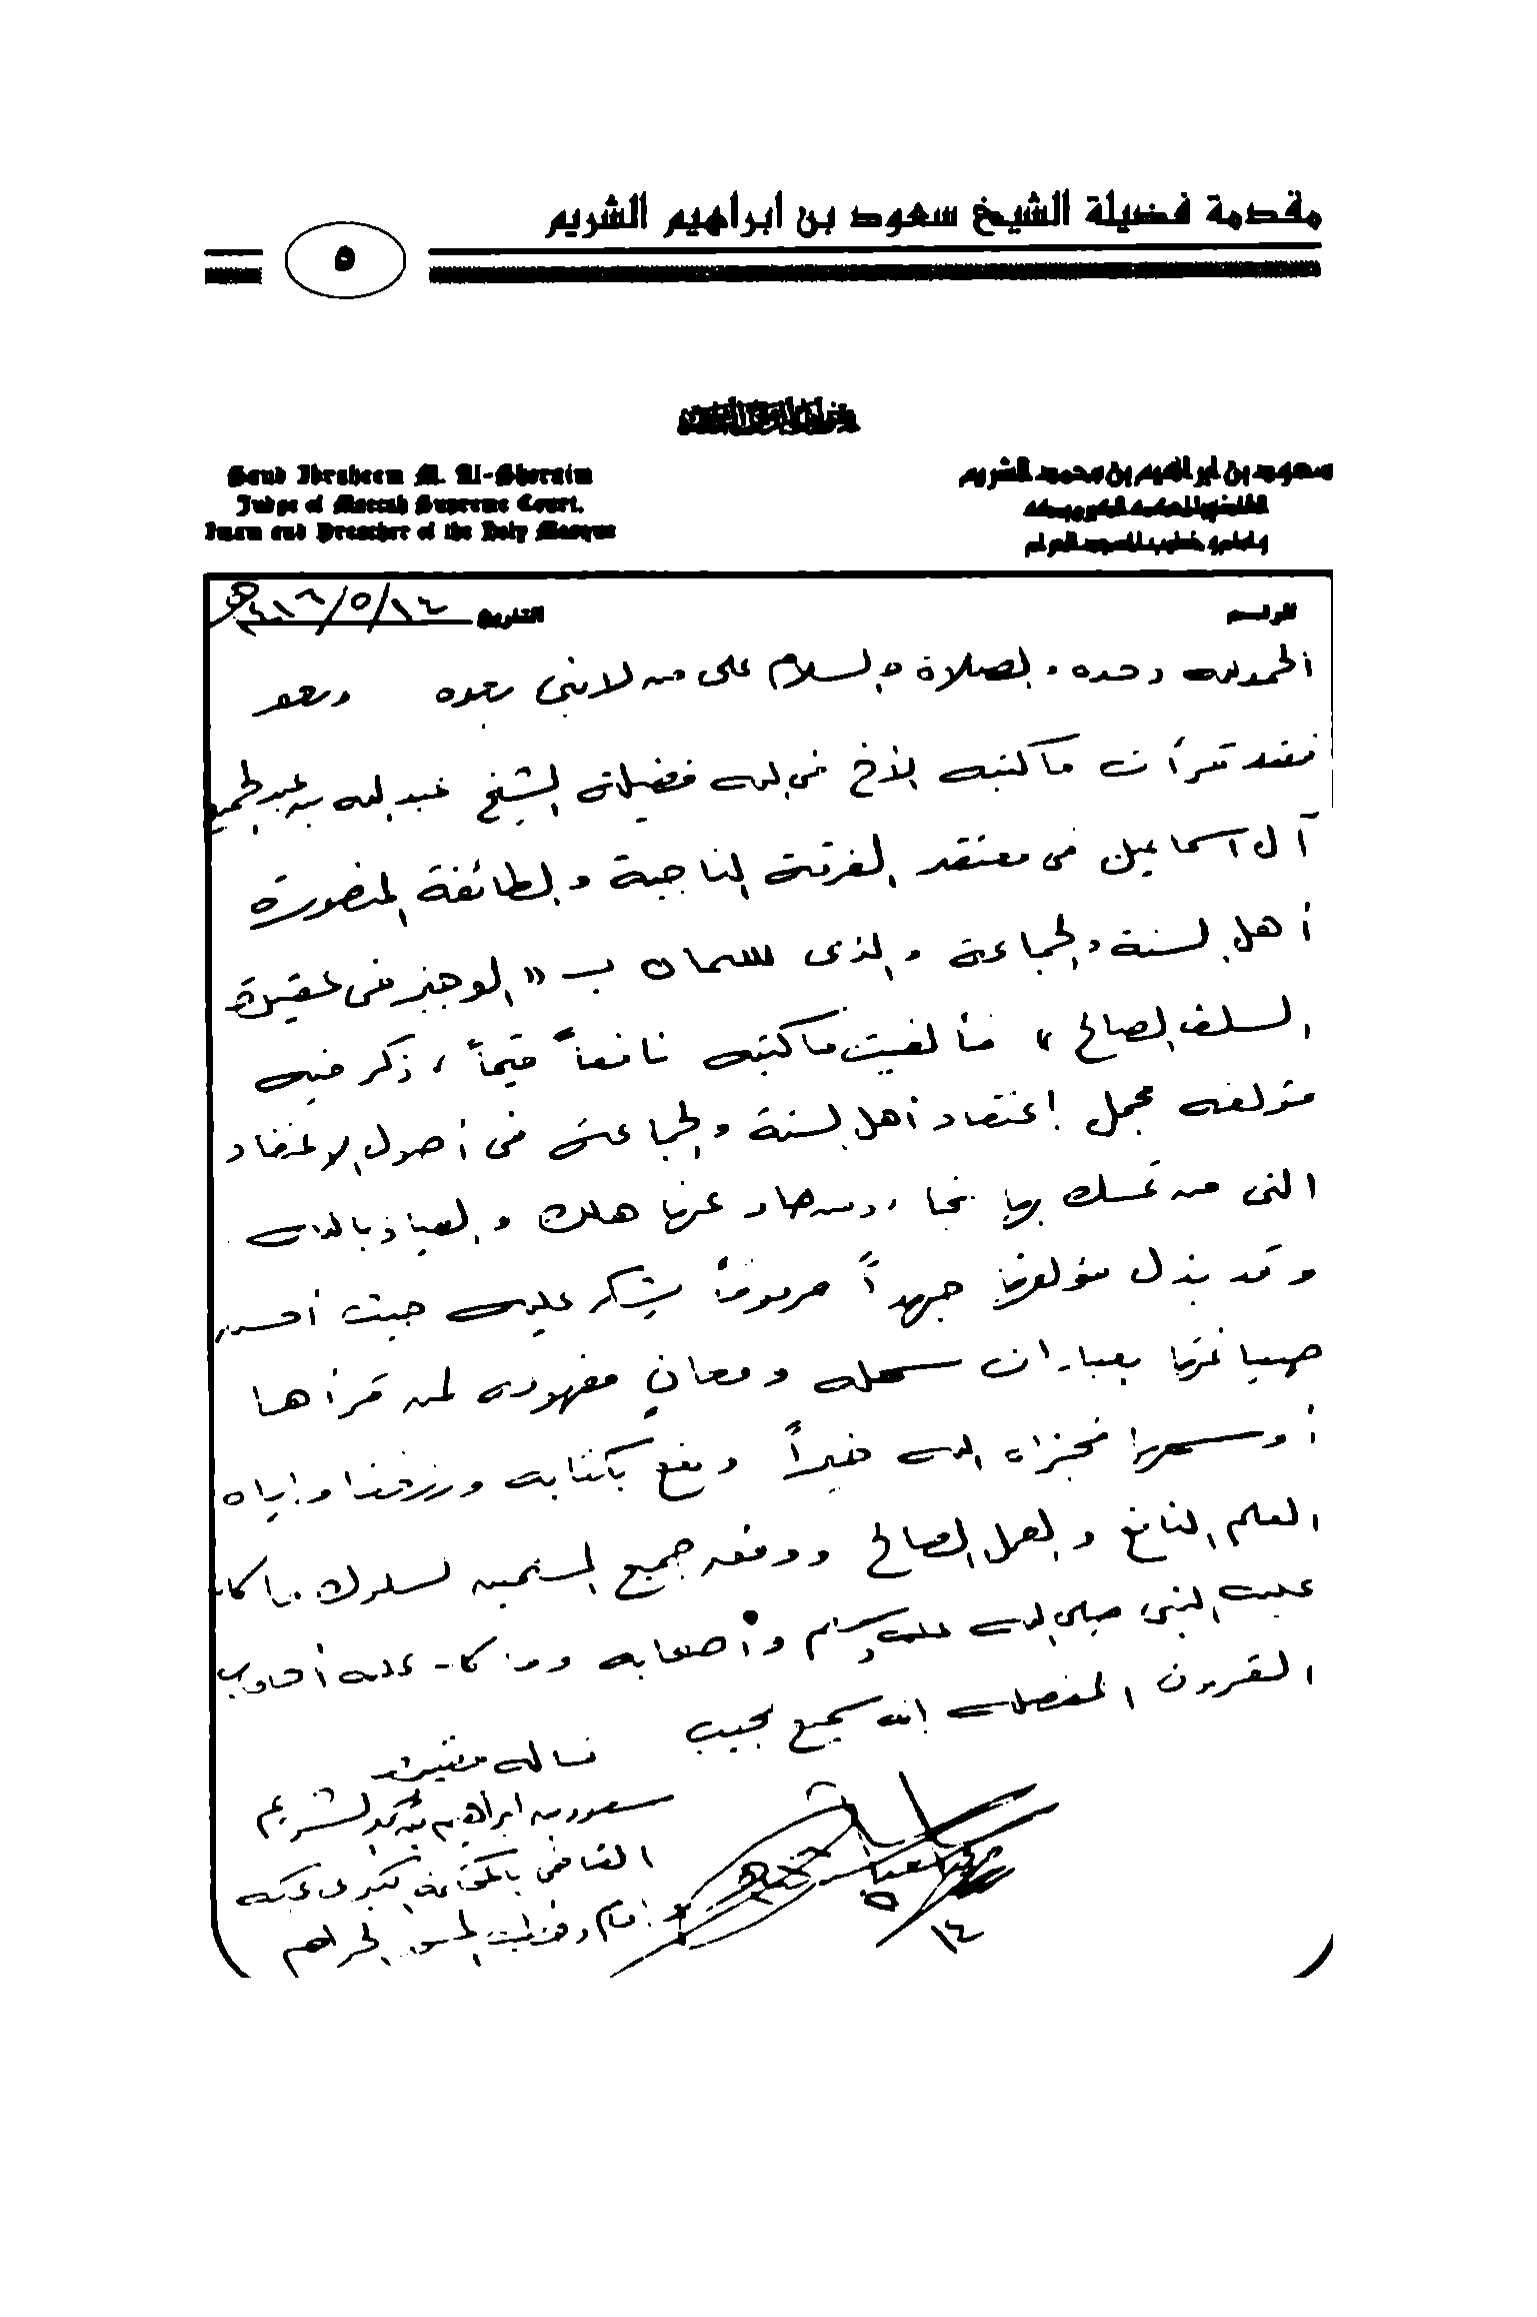 مقدمة فضيلة الشيخ سعود بن ابراهيم الشريم
٥
Saud Ibraheem M. Al-Shoraim
سعود بن ابراهيم بن محمد الشريم
Judge of Maccah Supreme Court.
القاضي بالمحكمة الكبرى بمكة
Imam and Preacher of the Holy Mosque
وإمام وخطيب المسجد الحرام
الرقم
التاريخ ١٤/٥/١٤١٦هـ
الحمد لله وحده والصلاة والسلام على من لا نبي بعده وبعد
فقد قرأت ما كتبه الأخ في الله فضيلة الشيخ عبد الله بن عبد الحميد
آل اسماعيل في معتقد الفرقة الناجية والطائفة المنصورة
أهل السنة والجماعة والذي سماه بـ « الوجيز في عقيدة
السلف الصالح » فألفيت ما كتبه نافعاً قيماً ، ذكر فيه
مؤلفه مجمل اعتقاد أهل السنة والجماعة في أصول الاعتقاد
التي من تمسك بها نجا ، ومن حاد عنها هلك والعياذ بالله
وقد بذل مؤلفها جهداً مرموقاً يشكر عليه حيث أحسن
صياغتها بعبارات سهله ومعانٍ مفهومه لمن قرأها
أو سمعها فجزاه الله خيراً ونفع بكتابه ورزقنا وإياه
العلم النافع والعمل الصالح ووفقه جميع المسلمين لسلوك ما كان
عليه النبي صلى الله عليه وسلم وأصحابه وما كان عليه أصحاب
القرون المفضله إنه سميع مجيب
قاله مقيده
سعود بن ابراهيم بن محمد الشريم
القاضي بالمحكمة الكبرى بمكه
وإمام وخطيب المسجد الحرام
١٤